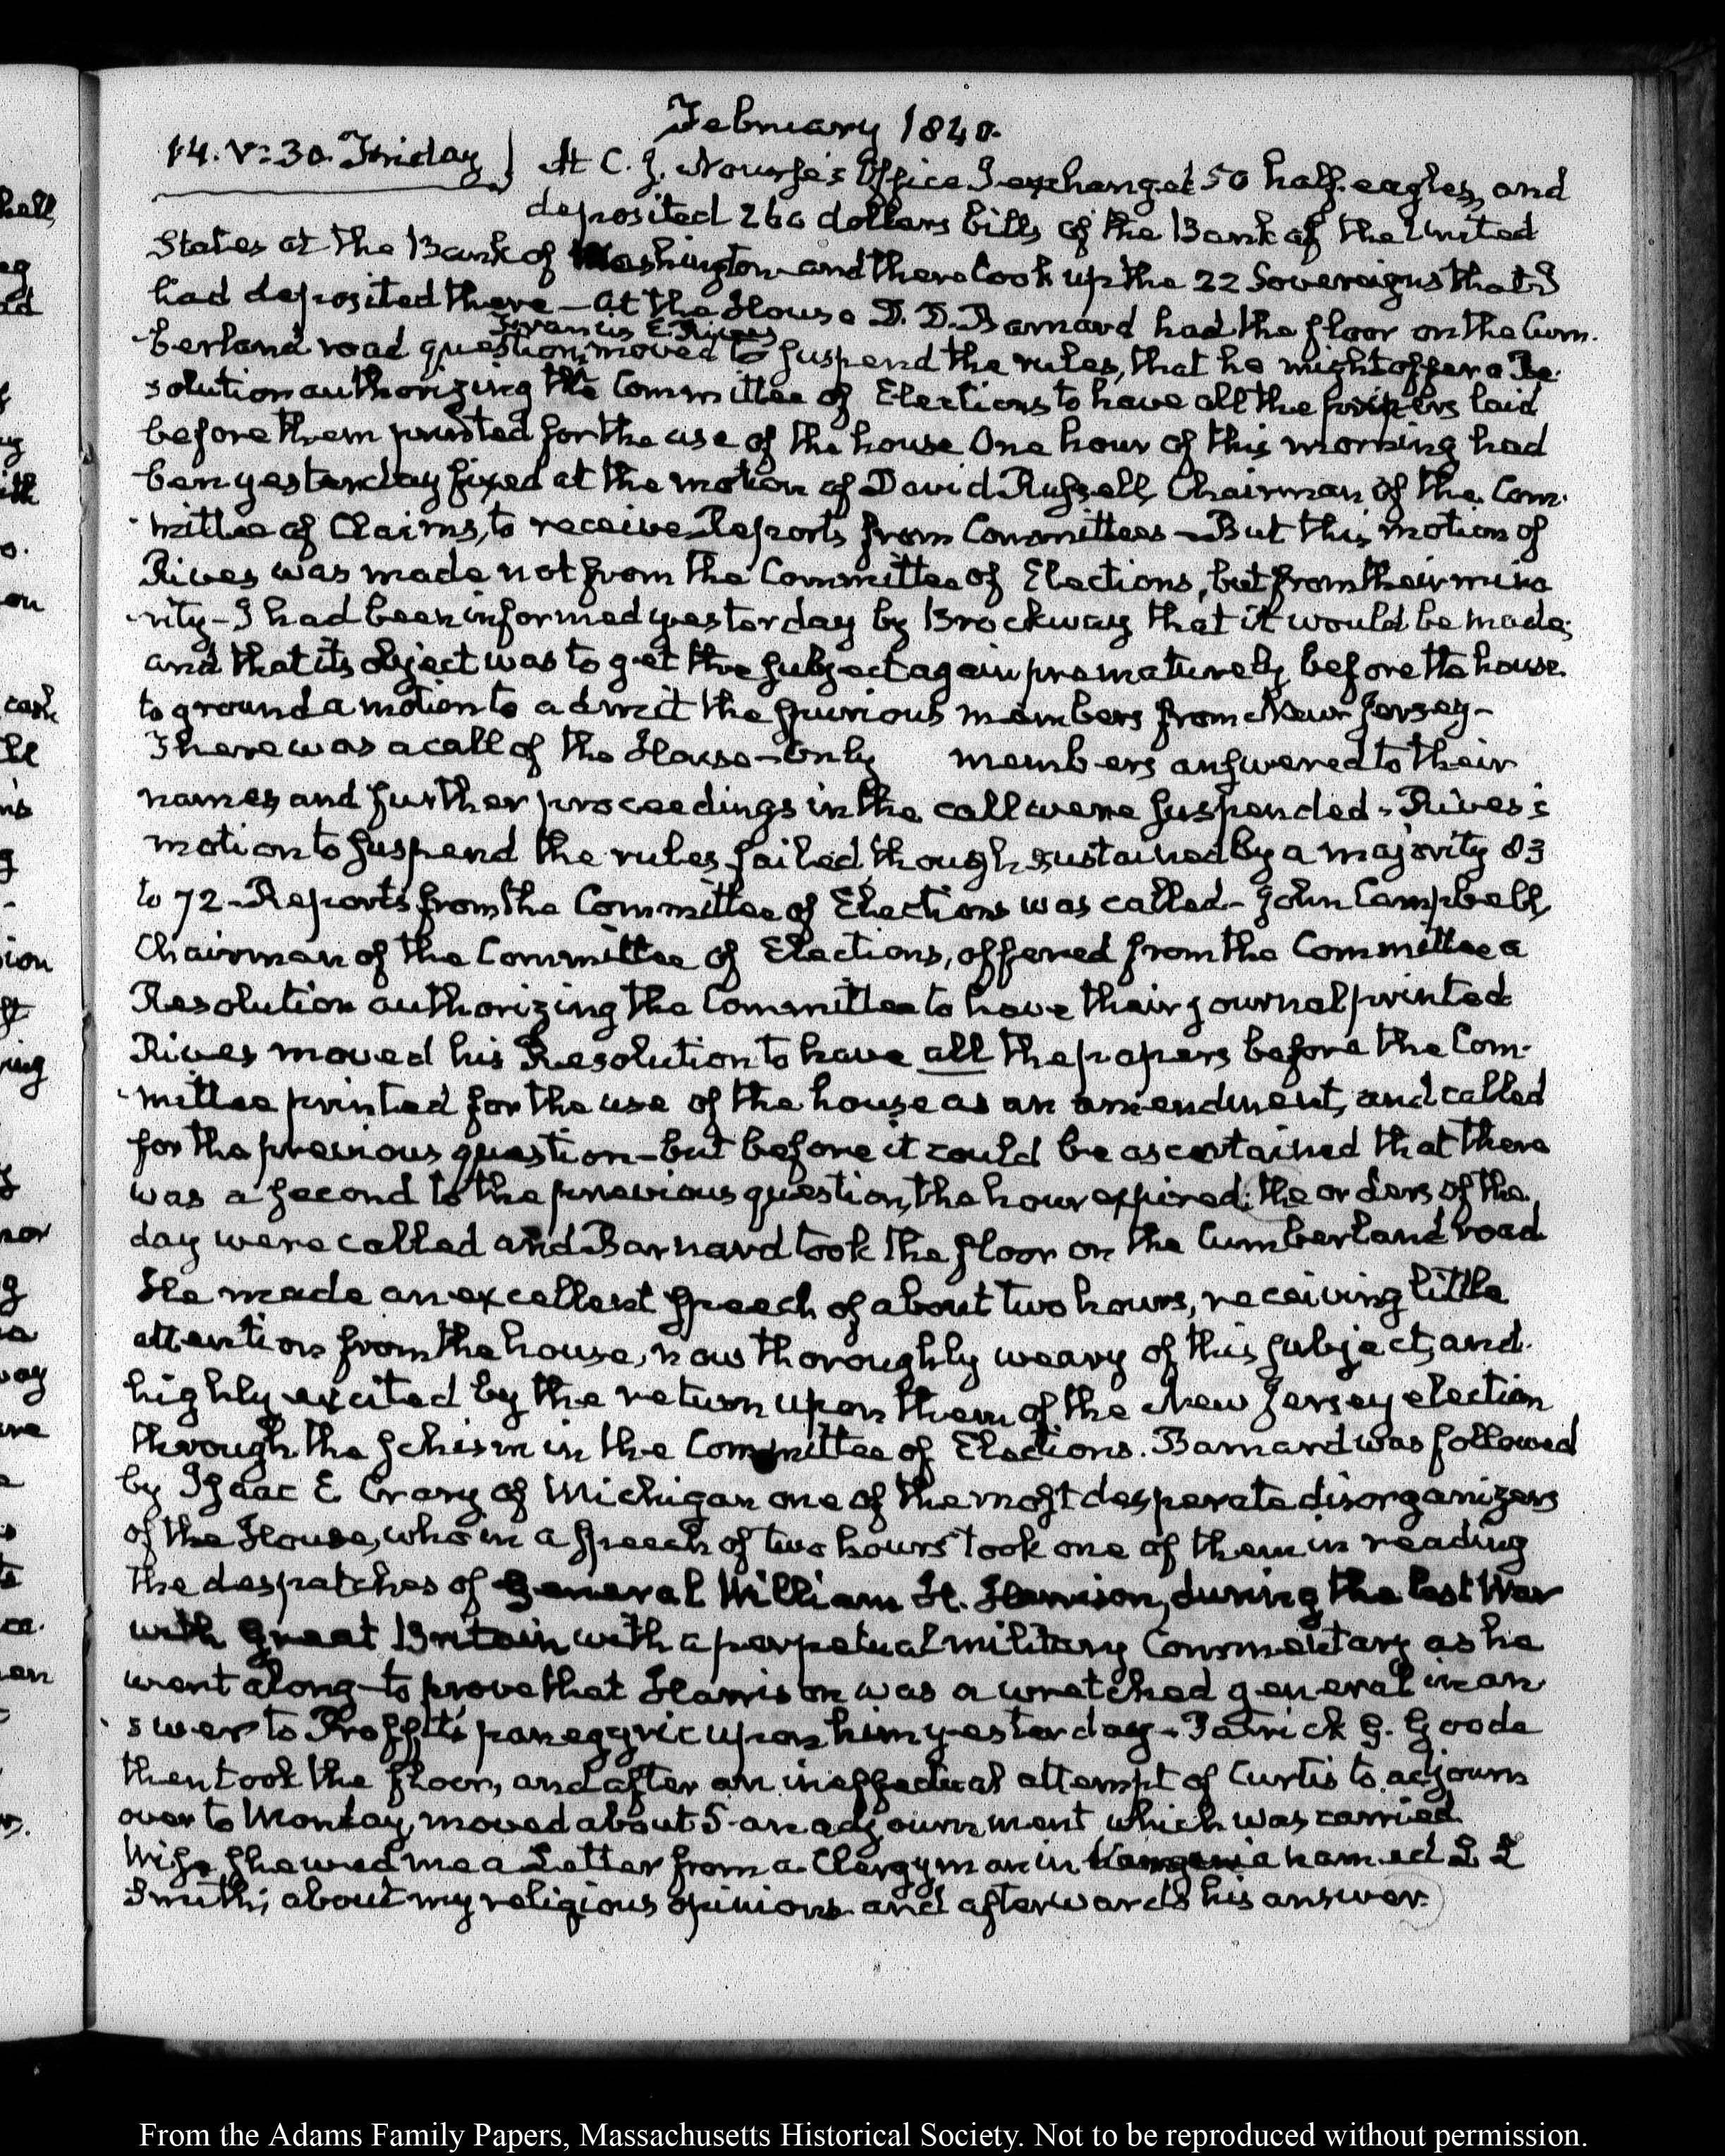 February 1840.
14. V:30. Friday} At C. J. Nourse's Office I exchanged 50 half-eagles, and
deposited 260 dollars bills of the Bank of the United
States at the Bank of Washington and there took up the 22 Sovereigns that I
had deposited there — At the House D. D. Barnard had the floor on the Cum-
Francis E. Rives
-berland road question, moved to suspend the rules, that he might offer a Re-
solution authorizing the Committee of Elections to have all the papers laid
before them printed for the use of the house One hour of this morning had
been yesterday fixed at the motion of David Russell, Chairman of the Com-
-mittee of Claims, to receive Reports from Committees — But this motion of
Rives was made not from the Committee of Elections, but from their mino
-rity — I had been informed yesterday by Brockway that it would be made;
and that its object was to get the subject again prematurely before the house.
to ground a motion to admit the spurious members from New-Jersey —
There was a call of the House — Only members answered to their
names and further proceedings in the call were suspended — Rives's
motion to suspend the rules, failed, though sustained by a majority 83
to 72 — Reports from the Committee of Elections was called — John Campbell,
Chairman of the Committee of Elections, offered from the Committee a
Resolution authorizing the Committee to have their journal printed
Rives moved his Resolution to have all the papers before the Com-
-mittee printed for the use of the house as an amendment, and called
for the previous question — but before it could be ascertained that there
was a second to the previous question, the hour expired: the orders of the
day were called and Barnard took the floor on the Cumberland road.
He made an excellent speech of about two hours, receiving little
attention from the house, now thoroughly weary of this subject, and
highly excited by the return upon them of the New Jersey election
through the schism in the Committee of Elections. Barnard was followed
by Isaac E. Crary of Michigan one of the most desperate disorganizers
of the House, who in a speech of two hours took one of them in reading
the despatches of General William H. Harrison, during the last War
with Great Britain with a perpetual military Commentary as he
went along — to prove that Harrison was a wretched general in an-
-swer to Proffit's panegyric upon him yesterday — Patrick G. Goode
then took the floor, and after an ineffectual attempt of Curtis to adjourn
over to Monday, moved about 5 an adjournment which was carried
Wise shewed me a Letter from a Clergyman in named L L
Smith; about my religious opinions and afterwards his answer.
hall
cash
ion
ing
way
From the Adams Family Papers, Massachusetts Historical Society. Not to be reproduced without permission.